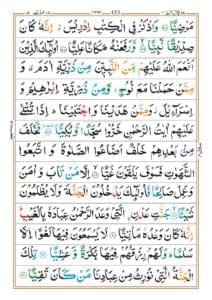 ٤٣٣
مَرْضِيًّا وَاذْكُرْ فِي الْكِتٰبِ اِدْرِيْسَ اِنَّهٗ كَانَ
صِدِّيْقًا نَّبِيًّا وَّرَفَعْنٰهُ مَكَانًا عَلِيًّا اُولٰٓئِكَ الَّذِيْنَ
اَنْعَمَ اللّٰهُ عَلَيْهِمْ مِّنَ النَّبِيّٖنَ مِنْ ذُرِّيَّةِ اٰدَمَ
وَمِمَّنْ حَمَلْنَا مَعَ نُوْحٍ وَّمِنْ ذُرِّيَّةِ اِبْرٰهِيْمَ وَ
اِسْرَآءِيْلَ وَمِمَّنْ هَدَيْنَا وَاجْتَبَيْنَا اِذَا تُتْلٰى
عَلَيْهِمْ اٰيٰتُ الرَّحْمٰنِ خَرُّوْا سُجَّدًا وَّبُكِيًّا فَخَلَفَ
مِنْۢ بَعْدِهِمْ خَلْفٌ اَضَاعُوا الصَّلٰوةَ وَاتَّبَعُوا
الشَّهَوٰتِ فَسَوْفَ يَلْقَوْنَ غَيًّا اِلَّا مَنْ تَابَ وَاٰمَنَ
وَعَمِلَ صَالِحًا فَاُولٰٓئِكَ يَدْخُلُوْنَ الْجَنَّةَ وَلَا يُظْلَمُوْنَ
شَيْئًا جَنّٰتِ عَدْنِ الَّتِيْ وَعَدَ الرَّحْمٰنُ عِبَادَهٗ بِالْغَيْبِ
اِنَّهٗ كَانَ وَعْدُهٗ مَاْتِيًّا لَا يَسْمَعُوْنَ فِيْهَا لَغْوًا اِلَّا
سَلٰمًا وَلَهُمْ رِزْقُهُمْ فِيْهَا بُكْرَةً وَّعَشِيًّا تِلْكَ
الْجَنَّةُ الَّتِيْ نُوْرِثُ مِنْ عِبَادِنَا مَنْ كَانَ تَقِيًّا